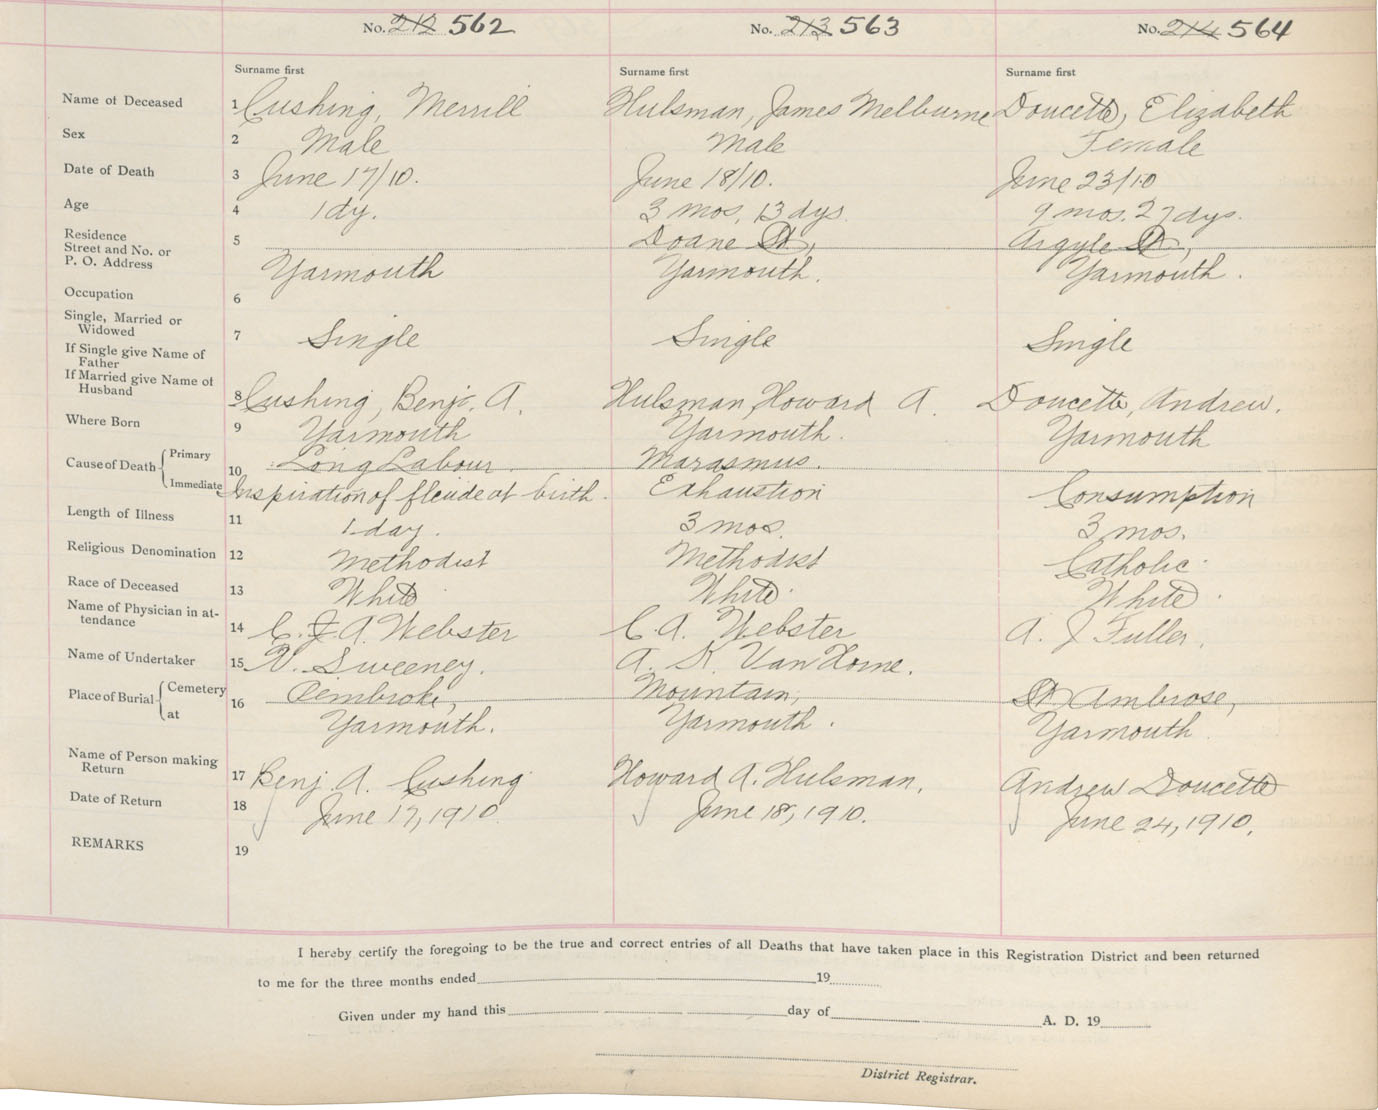 No. 212 562 No. 213 563 No. 214 564
Surname first Surname first Surname first
Name of Deceased 1 Cushing, Merrill Hulsman, James Melburne Doucette, Elizabeth
Sex 2 Male Male Female
Date of Death 3 June 17/10. June 18/10. June 23/10
Age 4 1 dy. 3 mos, 13 dys. 9 mos. 27 dys.
Residence 5 Doane St, Argyle St,
Street and No. or
P. O. Address Yarmouth Yarmouth. Yarmouth.
Occupation 6
Single, Married or
Widowed 7 Single Single Single
If Single give Name of
Father
If Married give Name of
Husband 8 Cushing, Benj. A. Hulsman, Howard A. Doucette, Andrew.
Where Born 9 Yarmouth Yarmouth. Yarmouth
Cause of Death Primary 10 Long Labour Marasmus.
Immediate Inspiration of fleude at birth. Exhaustion Consumption
Length of Illness 11 1 day. 3 mos. 3 mos.
Religious Denomination 12 Methodist Methodist Catholic
Race of Deceased 13 White White White
Name of Physician in at-
tendance 14 C. J. A. Webster C. A. Webster A. J. Fuller.
Name of Undertaker 15 V. Sweeney. A. K. Van Horne.
Place of Burial Cemetery 16 Pembroke, Mountain, St Ambrose,
at Yarmouth. Yarmouth. Yarmouth
Name of Person making
Return 17 Benj. A. Cushing Howard A. Hulsman. Andrew Doucette
Date of Return 18 June 17, 1910 June 18, 1910. June 24, 1910.
REMARKS 19
I hereby certify the foregoing to be the true and correct entries of all Deaths that have taken place in this Registration District and been returned
to me for the three months ended 19
Given under my hand this day of A. D. 19
District Registrar.